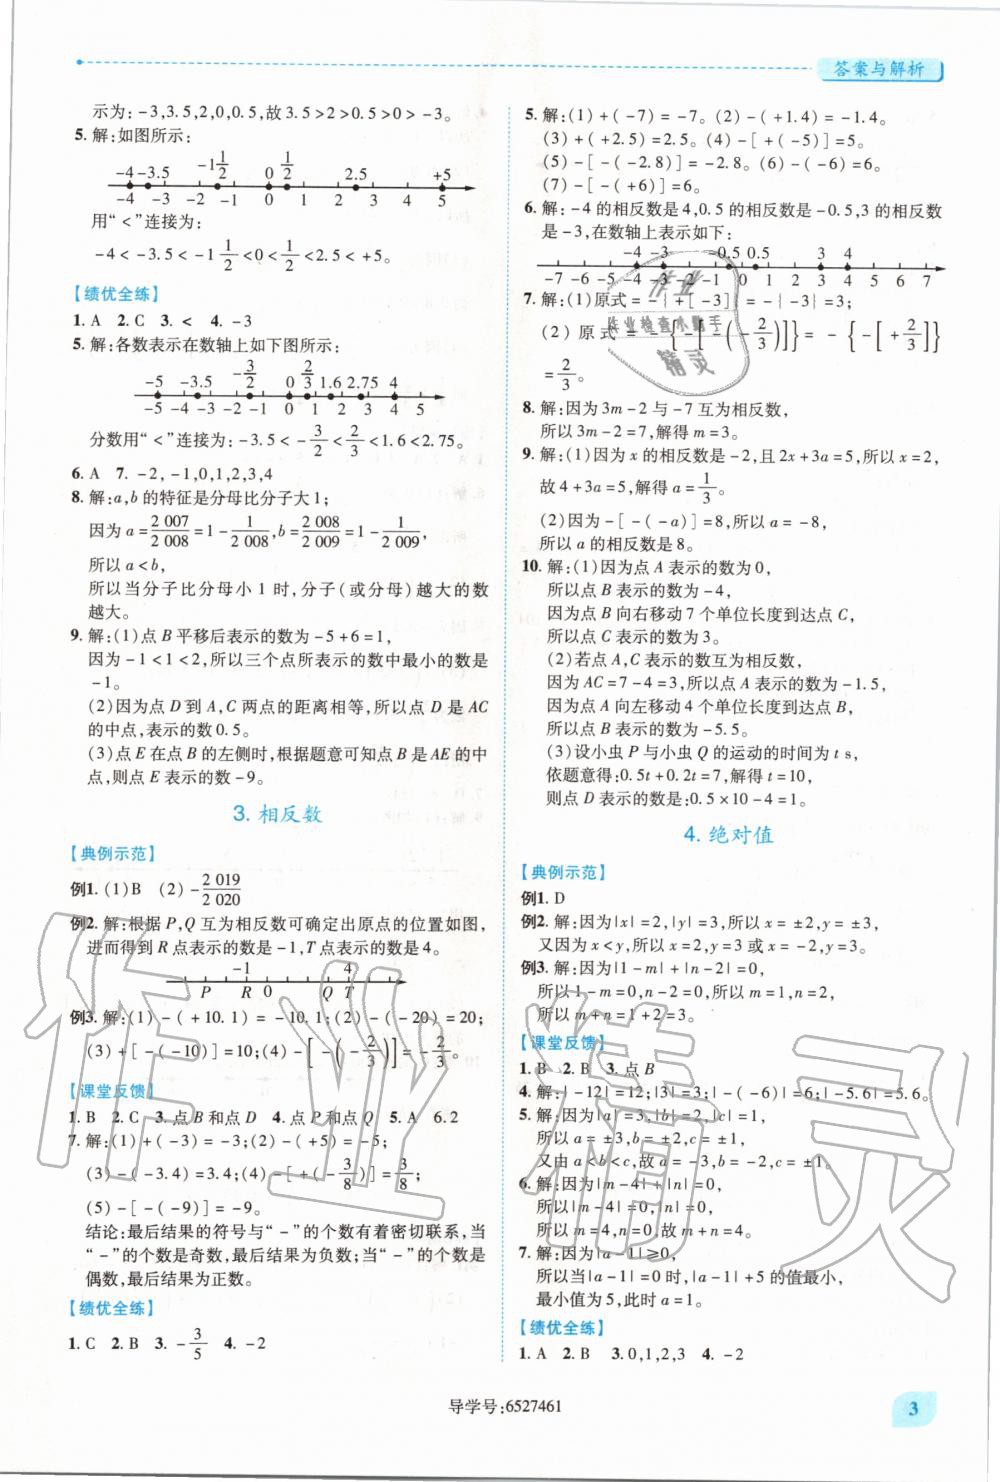 答案与解析
示为:-3,3.5,2,0,0.5,故3.5>2>0.5>0>-3。
5. 解:如图所示:
-4 -3.5 -1 1/2 0 1/2 2.5 +5
-4 -3 -2 -1 0 1 2 3 4 5
用“<”连接为:
-4<-3.5<-1 1/2<0<1/2<2.5<+5。
【绩优全练】
1. A 2. C 3. < 4. -3
5. 解:各数表示在数轴上如下图所示:
-5 -3.5 -3/2 0 2/3 1.6 2.75 4
-5 -4 -3 -2 -1 0 1 2 3 4
分数用“<”连接为:-3.5<-3/2<2/3<1.6<2.75。
6. A 7. -2,-1,0,1,2,3,4
8. 解:a,b的特征是分母比分子大1;
因为a=2 007/2 008=1-1/2 008,b=2 008/2 009=1-1/2 009,
所以a<b,
所以当分子比分母小1时,分子(或分母)越大的数
越大。
9. 解:(1)点B平移后表示的数为-5+6=1,
因为-1<1<2,所以三个点所表示的数中最小的数是
-1。
(2)因为点D到A,C两点的距离相等,所以点D是AC
的中点,表示的数0.5。
(3)点E在点B的左侧时,根据题意可知点B是AE的中
点,则点E表示的数-9。
3. 相反数
【典例示范】
例1. (1)B (2)-2 019/2 020
例2. 解:根据P,Q互为相反数可确定出原点的位置如图,
进而得到R点表示的数是-1,T点表示的数是4。
-1 4
P R 0 Q T
例3. 解:(1)-(+10.1)=-10.1;(2)-(-20)=20;
(3)+[-(-10)]=10;(4)-[-(-2/3)]=-2/3。
【课堂反馈】
1. B 2. C 3. 点B和点D 4. 点P和点Q 5. A 6.2
7. 解:(1)+(-3)=-3;(2)-(+5)=-5;
(3)-(-3.4)=3.4;(4)-[+(-3/8)]=3/8;
(5)-[-(-9)]=-9。
结论:最后结果的符号与“-”的个数有着密切联系,当
“-”的个数是奇数,最后结果为负数;当“-”的个数是
偶数,最后结果为正数。
【绩优全练】
1. C 2. B 3. -3/5 4. -2
5. 解:(1)+(-7)=-7。(2)-(+1.4)=-1.4。
(3)+(+2.5)=2.5。(4)-[+(-5)]=5。
(5)-[-(-2.8)]=-2.8。(6)-(-6)=6。
(7)-[-(+6)]=6。
6. 解:-4的相反数是4,0.5的相反数是-0.5,3的相反数
是-3,在数轴上表示如下:
-4 -3 -0.5 0.5 3 4
-7 -6 -5 -4 -3 -2 -1 0 1 2 3 4 5 6 7
7. 解:(1)原式=-|+[-3]|=-|-3|=3;
(2)原式=-{-[-(-2/3)]}=-{-[+2/3]}
=2/3。
8. 解:因为3m-2与-7互为相反数,
所以3m-2=7,解得m=3。
9. 解:(1)因为x的相反数是-2,且2x+3a=5,所以x=2,
故4+3a=5,解得a=1/3。
(2)因为-[-(-a)]=8,所以a=-8,
所以a的相反数是8。
10. 解:(1)因为点A表示的数为0,
所以点B表示的数为-4,
因为点B向右移动7个单位长度到达点C,
所以点C表示的数为3。
(2)若点A,C表示的数互为相反数,
因为AC=7-4=3,所以点A表示的数为-1.5,
因为点A向左移动4个单位长度到达点B,
所以点B表示的数为-5.5。
(3)设小虫P与小虫Q的运动的时间为t s,
依题意得:0.5t+0.2t=7,解得t=10,
则点D表示的数是:0.5×10-4=1。
4. 绝对值
【典例示范】
例1. D
例2. 解:因为|x|=2,|y|=3,所以x=±2,y=±3,
又因为x<y,所以x=2,y=3或x=-2,y=3。
例3. 解:因为|1-m|+|n-2|=0,
所以1-m=0,n-2=0,所以m=1,n=2,
所以m+n=1+2=3。
【课堂反馈】
1. B 2. B 3. 点B
4. 解:|-12|=12;|3|=3;|-(-6)|=6;|-5.6|=5.6。
5. 解:因为|a|=3,|b|=2,|c|=1,
所以a=±3,b=±2,c=±1,
又由a<b<c,故a=-3,b=-2,c=±1。
6. 解:因为|m-4|+|n|=0,
所以|m-4|=0,|n|=0,
所以m=4,n=0,故m+n=4。
7. 解:因为|a-1|≥0,
所以当|a-1|=0时,|a-1|+5的值最小,
最小值为5,此时a=1。
【绩优全练】
1. A 2. B 3.0,1,2,3 4. -2
导学号:6527461
3
作业精灵
作业
作业检查小帮手
精灵